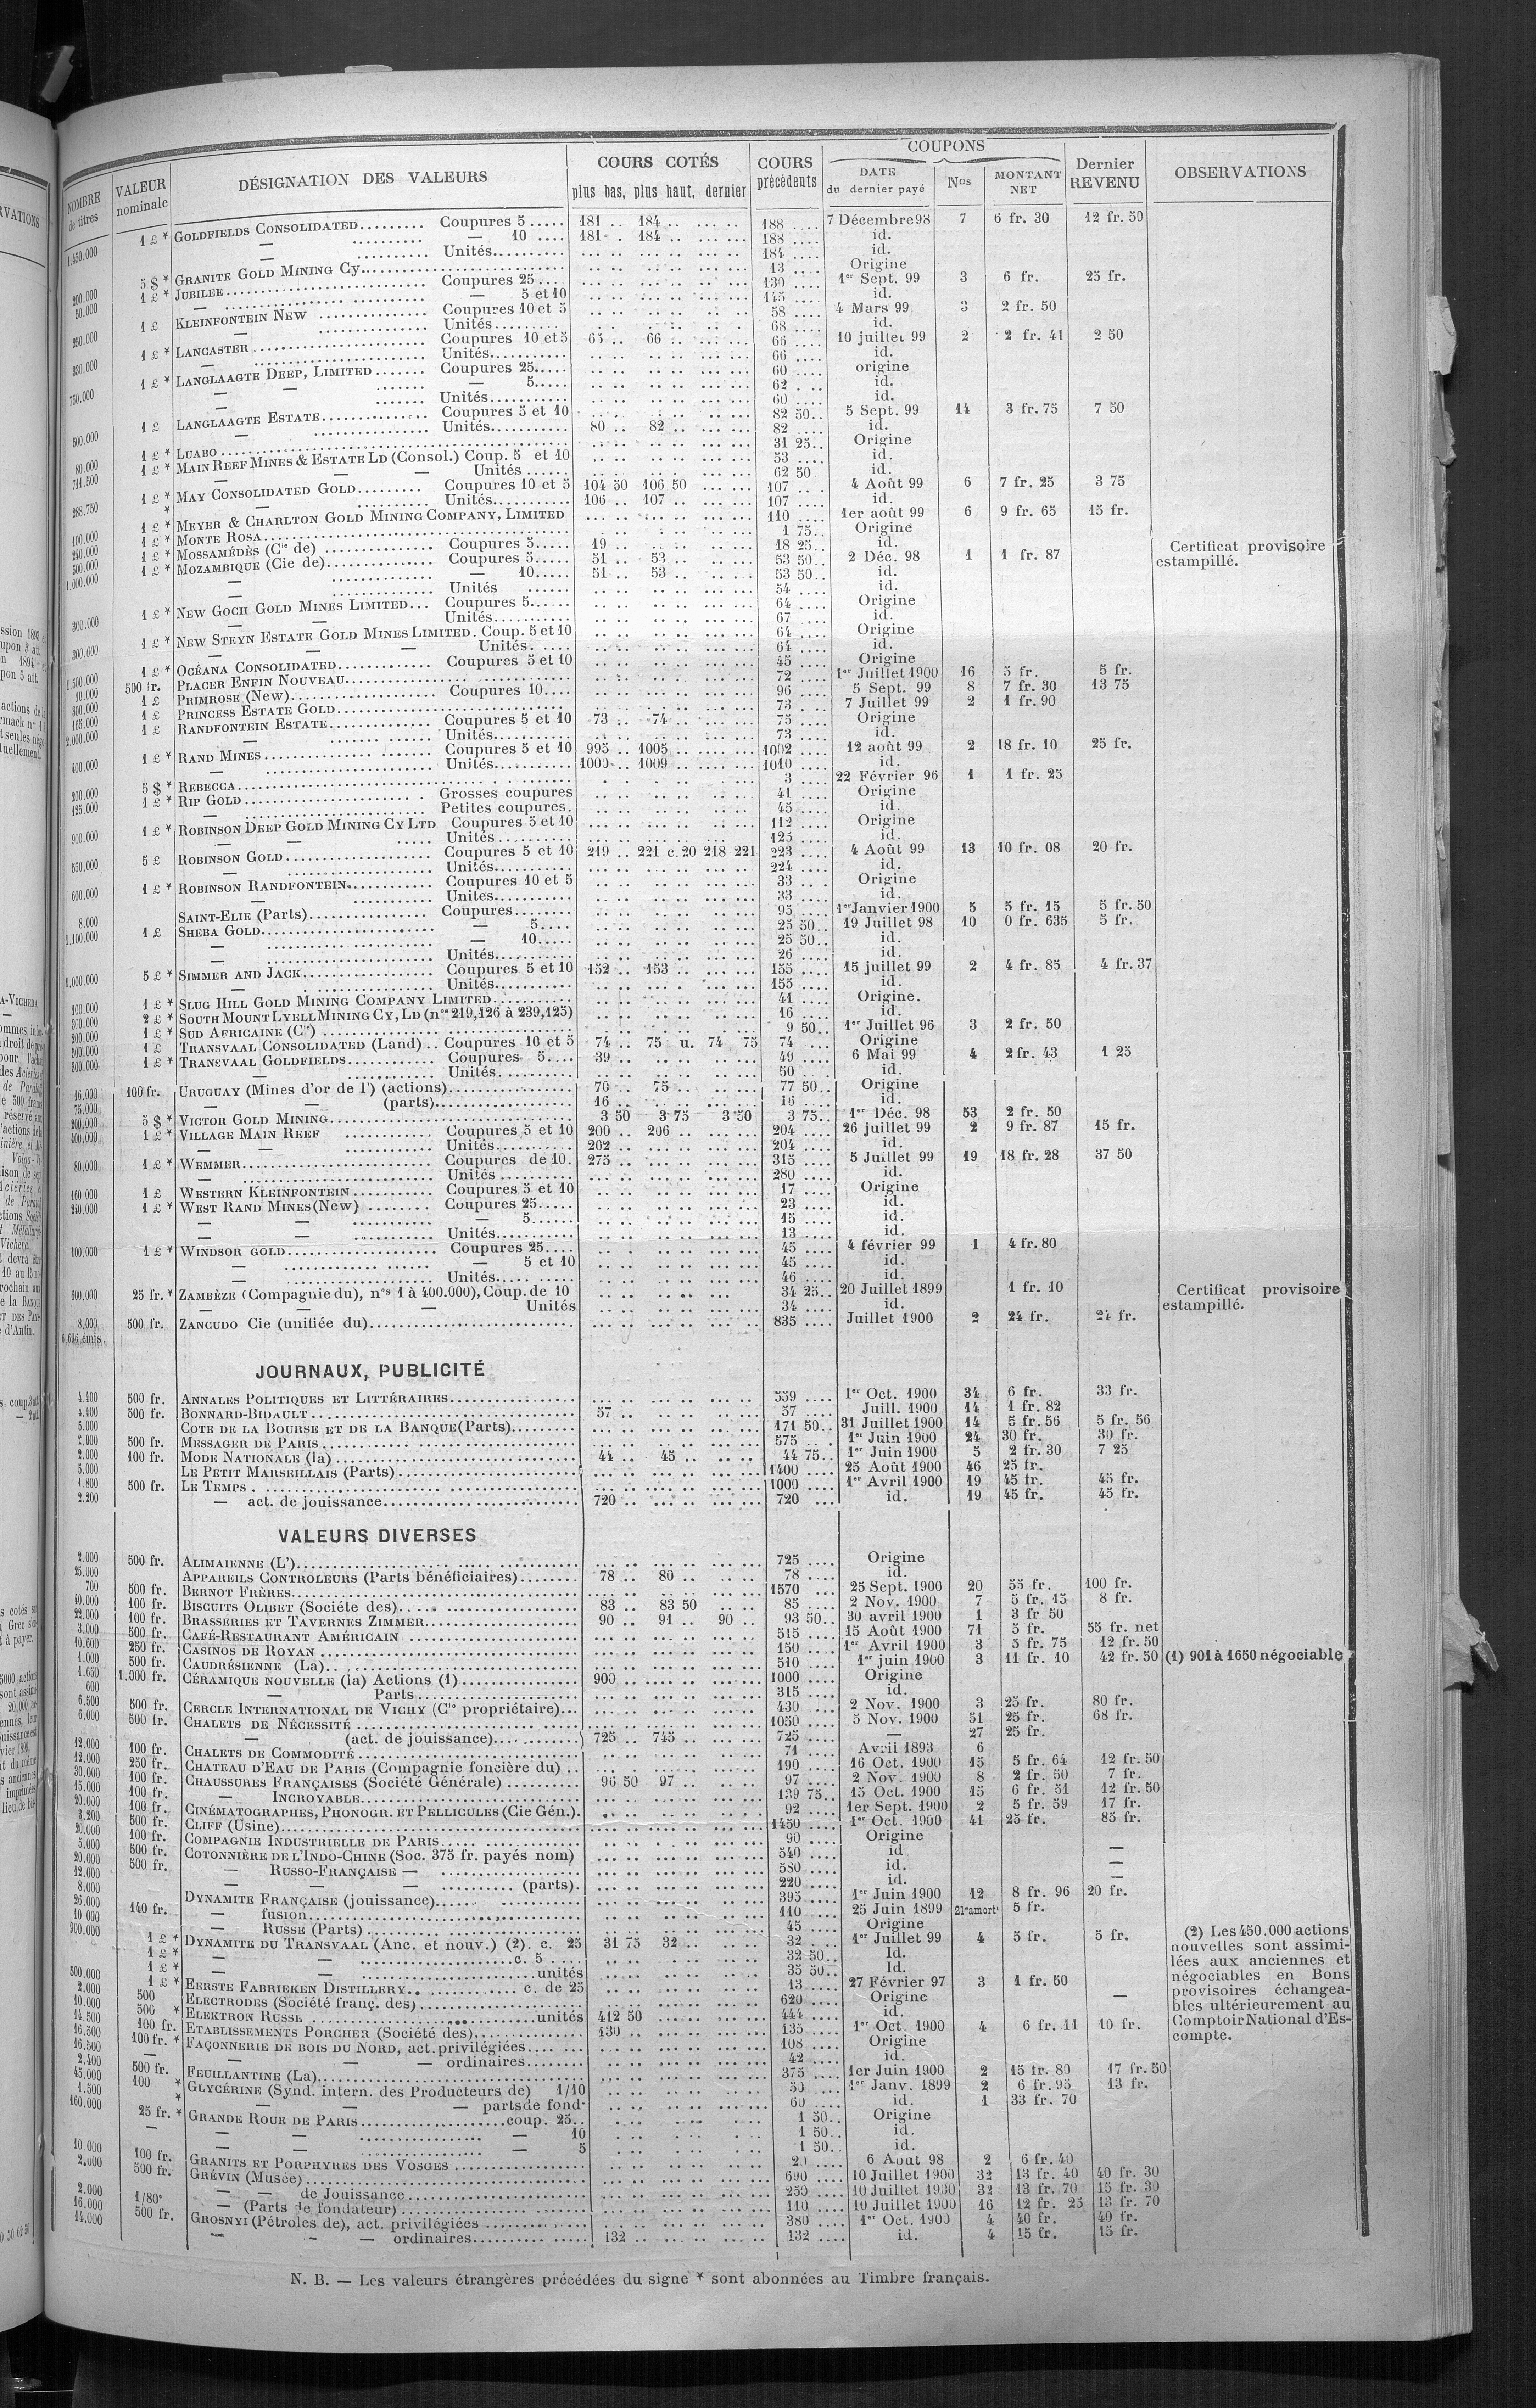 COUPONS
NOMBRE de titres VALEUR nominale DÉSIGNATION DES VALEURS COURS COTÉS plus bas, plus haut, dernier COURS précédents DATE du dernier payé Nos MONTANT NET Dernier REVENU OBSERVATIONS
1.450.000 1 £ * GOLDFIELDS CONSOLIDATED......... Coupures 5..... 181 .. 184 .. 188 .... 7 Décembre 98 7 6 fr. 30 12 fr. 50
— — 10 .... 181 .. 184 .. 188 .... id.
— Unités.......... 184 .... id.
200.000 5 $ * GRANITE GOLD MINING Cy.. 13 .... Origine
50.000 1 £ * JUBILEE.......... Coupures 25.... 130 .... 1er Sept. 99 3 6 fr. 25 fr.
— — 5 et 10 145 .... id.
250.000 1 £ KLEINFONTEIN NEW .......... Coupures 10 et 5 58 .... 4 Mars 99 3 2 fr. 50
— Unités......... 68 .... id.
330.000 1 £ * LANCASTER .......... Coupures 10 et 5 65 .. 66 .. 66 .... 10 juillet 99 2 2 fr. 41 2 50
— Unités.......... 66 .... id.
750.000 1 £ * LANGLAAGTE DEEP, LIMITED....... Coupures 25..... 60 .... origine
— — 5..... 62 .... id.
— Unités.......... 60 .... id.
500.000 1 £ LANGLAAGTE ESTATE.......... Coupures 5 et 10 82 50.. 5 Sept. 99 14 3 fr. 75 7 50
— Unités.......... 80 .. 82 .. 82 .... id.
80.000 1 £ * LUABO .......... 31 25.. Origine
711.500 1 £ * MAIN REEF MINES & ESTATE LD (Consol.) Coup. 5 et 10 53 .... id.
— — Unités ...... 62 50 id.
288.750 1 £ * MAY CONSOLIDATED GOLD......... Coupures 10 et 5 104 50 106 50 107 .... 4 Août 99 6 7 fr. 25 3 75
* — Unités.......... 106 .. 107 .. 107 .... id.
100.000 1 £ * MEYER & CHARLTON GOLD MINING COMPANY, LIMITED 110 .... 1er août 99 6 9 fr. 65 15 fr.
240.000 1 £ * MONTE ROSA.......... 1 75.. Origine
500.000 1 £ * MOSSAMÉDÈS (Cie de) .......... Coupures 5..... 19 .. 18 25.. id. Certificat provisoire
1.000.000 1 £ * MOZAMBIQUE (Cie de).......... Coupures 5..... 51 .. 53 .. 53 50.. 2 Déc. 98 1 1 fr. 87 estampillé.
— 10..... 51 .. 53 .. 53 50.. id.
— Unités ...... 54 .... id.
300.000 1 £ * NEW GOCH GOLD MINES LIMITED... Coupures 5...... 64 .... Origine
— — Unités.......... 67 .... id.
300.000 1 £ * NEW STEYN ESTATE GOLD MINES LIMITED. Coup. 5 et 10 64 .... Origine
— — — Unités. .... 64 .... id.
1.500.000 1 £ * OCÉANA CONSOLIDATED.......... Coupures 5 et 10 45 .... Origine
40.000 500 fr. PLACER ENFIN NOUVEAU.......... 72 .... 1er Juillet 1900 16 5 fr. 5 fr.
300.000 1 £ PRIMROSE (New).......... Coupures 10.... 96 .... 5 Sept. 99 8 7 fr. 30 13 75
165.000 1 £ PRINCESS ESTATE GOLD.......... 73 .... 7 Juillet 99 2 1 fr. 90
2.000.000 1 £ RANDFONTEIN ESTATE.......... Coupures 5 et 10 73 .. 74 .. 75 .... Origine
— Unités.......... 73 .... id.
400.000 1 £ * RAND MINES .......... Coupures 5 et 10 995 .. 1005 .. 1002 .... 12 août 99 2 18 fr. 10 25 fr.
— Unités.......... 1009 .. 1009 .. 1010 .... id.
200.000 5 $ * REBECCA.......... 3 .... 22 Février 96 1 1 fr. 25
125.000 1 £ * RIP GOLD.......... Grosses coupures 41 .... Origine
— Petites coupures. 45 .... id.
900.000 1 £ * ROBINSON DEEP GOLD MINING CY LTD Coupures 5 et 10 112 .... Origine
— — Unités .......... 125 .... id.
550.000 5 £ ROBINSON GOLD.......... Coupures 5 et 10 219 .. 221 c.20 218 221 223 .... 4 Août 99 13 10 fr. 08 20 fr.
— Unités.......... 224 .... id.
600.000 1 £ * ROBINSON RANDFONTEIN.......... Coupures 10 et 5 33 .... Origine
— Unites.......... 33 .... id.
8.000 SAINT-ELIE (Parts).......... Coupures........ 95 .... 1er Janvier 1900 5 5 fr. 15 5 fr. 50
1.100.000 1 £ SHEBA GOLD.......... — 5.... 25 50.. 19 Juillet 98 10 0 fr. 635 5 fr.
— — 10..... 25 50.. id.
— Unités.......... 26 .... id.
1.000.000 5 £ * SIMMER AND JACK.......... Coupures 5 et 10 152 .. 153 .. 155 .... 15 juillet 99 2 4 fr. 85 4 fr. 37
— Unités.......... 155 .... id.
100.000 1 £ * SLUG HILL GOLD MINING COMPANY LIMITED.......... 41 .... Origine.
360.000 2 £ * SOUTH MOUNT LYELL MINING CY, LD (nos 219,126 à 239,125) 16 .... id.
200.000 1 £ * SUD AFRICAINE (Cie) .......... 9 50.. 1er Juillet 96 3 2 fr. 50
500.000 1 £ TRANSVAAL CONSOLIDATED (Land) .. Coupures 10 et 5 74 .. 75 u. 74 75 74 .... Origine
300.000 1 £ * TRANSVAAL GOLDFIELDS.......... Coupures 5.... 39 .. 49 .... 6 Mai 99 4 2 fr. 43 1 25
— Unités.......... 50 .... id.
16.000 100 fr. URUGUAY (Mines d'or de l') (actions).......... 70 .. 75 .. 77 50.. Origine
75.000 — — (parts).......... 16 .. 16 .... id.
200.000 5 $ * VICTOR GOLD MINING.......... 3 50 3 75 3 50 3 75.. 1er Déc. 98 53 2 fr. 50
400.000 1 £ * VILLAGE MAIN REEF .......... Coupures 5 et 10 200 .. 206 .. 204 .... 26 juillet 99 2 9 fr. 87 15 fr.
— — Unités.......... 202 .. 204 .... id.
80.000 1 £ * WEMMER.......... Coupures de 10. 275 .. 315 .... 5 Juillet 99 19 18 fr. 28 37 50
— Unités .......... 280 .... id.
160 000 1 £ WESTERN KLEINFONTEIN .......... Coupures 5 et 10 17 .... Origine
240.000 1 £ * WEST RAND MINES (New) ........ Coupures 25..... 23 .... id.
— — — 5...... 15 .... id.
— — Unités.......... 13 .... id.
100.000 1 £ * WINDSOR GOLD.......... Coupures 25.... 45 .... 4 février 99 1 4 fr. 80
— — 5 et 10 45 .... id.
— Unités.......... 46 .... id.
600.000 25 fr. * ZAMBÈZE (Compagnie du), nos 1 à 400.000), Coup. de 10 34 25.. 20 Juillet 1899 1 fr. 10 Certificat provisoire
— — — Unités 34 .... id. estampillé.
8.000 500 fr. ZANCUDO Cie (unifiée du).......... 835 .... Juillet 1900 2 24 fr. 24 fr.
6.626 émis.
JOURNAUX, PUBLICITÉ
4.400 500 fr. ANNALES POLITIQUES ET LITTÉRAIRES.......... 559 .... 1er Oct. 1900 34 6 fr. 33 fr.
4.400 500 fr. BONNARD-BIDAULT.......... 57 .. 57 .... Juill. 1900 14 1 fr. 82
5.000 COTE DE LA BOURSE ET DE LA BANQUE (Parts).......... 171 50.. 31 Juillet 1900 14 5 fr. 56 5 fr. 56
2.900 500 fr. MESSAGER DE PARIS.......... 575 .... 1er Juin 1900 24 30 fr. 30 fr.
2.000 100 fr. MODE NATIONALE (la) .......... 44 .. 45 .. 44 75.. 1er Juin 1900 5 2 fr. 30 7 25
5.000 LE PETIT MARSEILLAIS (Parts).......... 1400 .... 25 Août 1900 46 25 fr.
1.800 500 fr. LE TEMPS .......... 1000 .... 1er Avril 1900 19 45 fr. 45 fr.
2.200 — act. de jouissance.......... 720 .. 720 .... id. 19 45 fr. 45 fr.
VALEURS DIVERSES
2.000 500 fr. ALIMAIENNE (L').......... 725 .... Origine
25.000 APPAREILS CONTROLEURS (Parts bénéficiaires)........ 78 .. 80 .. 78 .... id.
700 500 fr. BERNOT FRÈRES.......... 1570 .... 25 Sept. 1900 20 55 fr. 100 fr.
40.000 100 fr. BISCUITS OLIBET (Société des).......... 83 .. 83 50 85 .... 2 Nov. 1900 7 5 fr. 15 8 fr.
22.000 100 fr. BRASSERIES ET TAVERNES ZIMMER.......... 90 .. 91 .. 90 .. 93 50.. 30 avril 1900 1 3 fr 50
3.000 500 fr. CAFÉ-RESTAURANT AMÉRICAIN .......... 515 .... 15 Août 1900 71 5 fr. 55 fr. net
10.600 250 fr. CASINOS DE ROYAN .......... 150 .... 1er Avril 1900 3 5 fr. 75 12 fr. 50
1.000 500 fr. CAUDRÉSIENNE (La).......... 510 .... 1er juin 1900 3 11 fr. 10 42 fr. 50 (1) 901 à 1650 négociable
1.650 1.000 fr. CÉRAMIQUE NOUVELLE (la) Actions (1).......... 900 .. 1000 .... Origine
600 — Parts.......... 315 .... id.
6.500 500 fr. CERCLE INTERNATIONAL DE VICHY (Cie propriétaire)... 430 .... 2 Nov. 1900 3 25 fr. 80 fr.
6.000 500 fr. CHALETS DE NÉCESSITÉ .......... 1050 .... 5 Nov. 1900 51 25 fr. 68 fr.
— (act. de jouissance).......... 725 .. 745 .. 725 .... — 27 25 fr.
12.000 100 fr. CHALETS DE COMMODITÉ .......... 71 .... Avril 1893 6
12.000 250 fr. CHATEAU D'EAU DE PARIS (Compagnie foncière du) .. 190 .... 16 Oct. 1900 15 5 fr. 64 12 fr. 50
30.000 100 fr. CHAUSSURES FRANÇAISES (Société Générale) .......... 96 50 97 .. 97 .... 2 Nov. 1900 8 2 fr. 50 7 fr.
15.000 100 fr. — INCROYABLE.......... 139 75.. 15 Oct. 1900 15 6 fr. 51 12 fr. 50
20.000 100 fr. CINÉMATOGRAPHES, PHONOGR. ET PELLICULES (Cie Gén.). 92 .... 1er Sept. 1900 2 5 fr. 59 17 fr.
3.200 500 fr. CLIFF (Usine).......... 1450 .... 1er Oct. 1900 41 25 fr. 85 fr.
20.000 100 fr. COMPAGNIE INDUSTRIELLE DE PARIS.......... 90 .... Origine
5.000 500 fr. COTONNIÈRE DE L'INDO-CHINE (Soc. 375 fr. payés nom) 540 .... id. —
20.000 500 fr. — RUSSO-FRANÇAISE — .......... 580 .... id. —
12.000 — — — .......... (parts). 220 .... id. —
8.000 DYNAMITE FRANÇAISE (jouissance).......... 395 .... 1er Juin 1900 12 8 fr. 96 20 fr.
26.000 140 fr. — fusion.......... 110 .... 25 Juin 1899 21e amort' 5 fr.
10 000 — RUSSE (Parts).......... 45 .... Origine (2) Les 450.000 actions
900.000 1 £ * DYNAMITE DU TRANSVAAL (Anc. et nouv.) (2). c. 25 31 75 32 .. 32 .... 1er Juillet 99 4 5 fr. 5 fr. nouvelles sont assimi-
1 £ * — — c. 5 .... 32 50.. Id. lées aux anciennes et
1 £ * — — unités 35 50.. Id. négociables en Bons
500.000 1 £ * EERSTE FABRIEKEN DISTILLERY.......... c. de 25 13 .... 27 Février 97 3 1 fr. 50 provisoires échangea-
2.000 500 ELECTRODES (Société franç. des).......... 620 .... Origine — bles ultérieurement au
10.000 500 * ELEKTRON RUSSE .......... unités 412 50 444 .... id. Comptoir National d'Es-
14.500 100 fr. ETABLISSEMENTS PORCHER (Société des).......... 130 .. 135 .... 1er Oct. 1900 4 6 fr. 11 10 fr. compte.
16.500 100 fr. * FAÇONNERIE DE BOIS DU NORD, act. privilégiées.......... 108 .... Origine
16.500 — — — — ordinaires........ 42 .... id.
2.400 500 fr. FEUILLANTINE (La).......... 375 .... 1er Juin 1900 2 15 fr. 80 17 fr. 50
45.000 100 * GLYCÉRINE (Synd. intern. des Producteurs de) 1/10 50 .... 1er Janv. 1899 2 6 fr. 95 13 fr.
1.500 * — — — parts de fond. 60 .... id. 1 33 fr. 70
160.000 25 fr. * GRANDE ROUE DE PARIS.......... coup. 25.. 1 50.. Origine
— — — — 10 1 50.. id.
— — — 5 1 50.. id.
10.000 100 fr. GRANITS ET PORPHYRES DES VOSGES .......... 20 .... 6 Août 98 2 6 fr. 40
2.000 500 fr. GRÉVIN (Musée) .......... 690 .... 10 Juillet 1900 32 13 fr. 40 40 fr. 30
2.000 — — de Jouissance.......... 250 .... 10 Juillet 1900 32 13 fr. 70 15 fr. 30
16.000 1/80e — (Parts de fondateur) .......... 110 .... 10 Juillet 1900 16 12 fr. 25 13 fr. 70
14.000 500 fr. GROSNYI (Pétroles de), act. privilégiées .......... 380 .... 1er Oct. 1900 4 40 fr. 40 fr.
— — ordinaires.......... 132 .. 132 .... id. 4 15 fr. 15 fr.
N. B. — Les valeurs étrangères précédées du signe * sont abonnées au Timbre français.